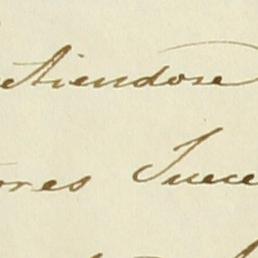 etiendose
ores Juece